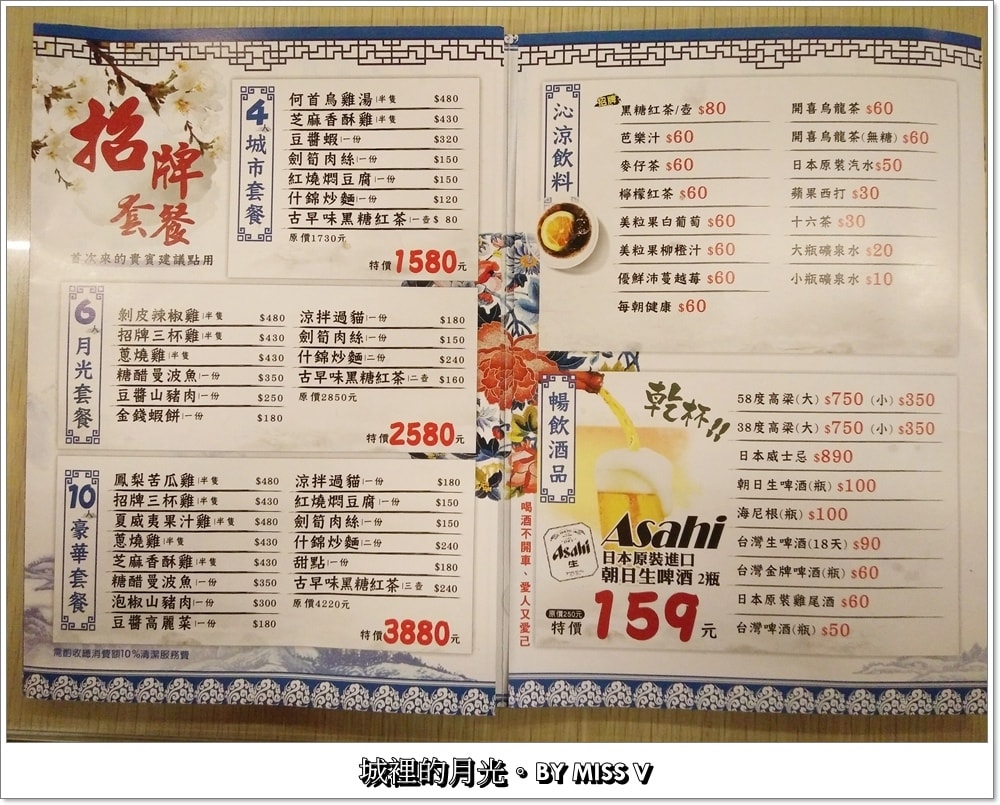 招牌
套餐
首次來的貴賓建議點用
4人城市套餐
何首烏雞湯|半隻 $480
芝麻香酥雞|半隻 $430
豆醬蝦|一份 $320
劍筍肉絲|一份 $150
紅燒燜豆腐|一份 $150
什錦炒麵|一份 $120
古早味黑糖紅茶|一壺 $ 80
原價1730元
特價1580元
6人月光套餐
剝皮辣椒雞|半隻 $480
招牌三杯雞|半隻 $430
蔥燒雞|半隻 $430
糖醋曼波魚|一份 $350
豆醬山豬肉|一份 $250
金錢蝦餅|一份 $180
涼拌過貓|一份 $180
劍筍肉絲|一份 $150
什錦炒麵|二份 $240
古早味黑糖紅茶|二壺 $160
原價2850元
特價2580元
10人豪華套餐
鳳梨苦瓜雞|半隻 $480
招牌三杯雞|半隻 $430
夏威夷果汁雞|半隻 $480
蔥燒雞|半隻 $430
芝麻香酥雞|半隻 $430
糖醋曼波魚|一份 $350
泡椒山豬肉|一份 $300
豆醬高麗菜|一份 $180
涼拌過貓|一份 $180
紅燒燜豆腐|一份 $150
劍筍肉絲|一份 $150
什錦炒麵|二份 $240
甜點|一份 $180
古早味黑糖紅茶|三壺 $240
原價4220元
特價3880元
需酌收總消費額10%清潔服務費
沁涼飲料
招牌 黑糖紅茶/壺 $80
芭樂汁 $60
麥仔茶 $60
檸檬紅茶 $60
美粒果白葡萄 $60
美粒果柳橙汁 $60
優鮮沛蔓越莓 $60
每朝健康 $60
開喜烏龍茶 $60
開喜烏龍茶(無糖) $60
日本原裝汽水 $50
蘋果西打 $30
十六茶 $30
大瓶礦泉水 $20
小瓶礦泉水 $10
暢飲酒品
乾杯!!
Asahi
生
Asahi
日本原裝進口
朝日生啤酒 2瓶
原價250元
特價 159元
喝酒不開車、愛人又愛己
58度高梁(大) $750 (小) $350
38度高梁(大) $750 (小) $350
日本威士忌 $890
朝日生啤酒(瓶) $100
海尼根(瓶) $100
台灣生啤酒(18天) $90
台灣金牌啤酒(瓶) $60
日本原裝雞尾酒 $60
台灣啤酒(瓶) $50
城裡的月光・BY MISS V